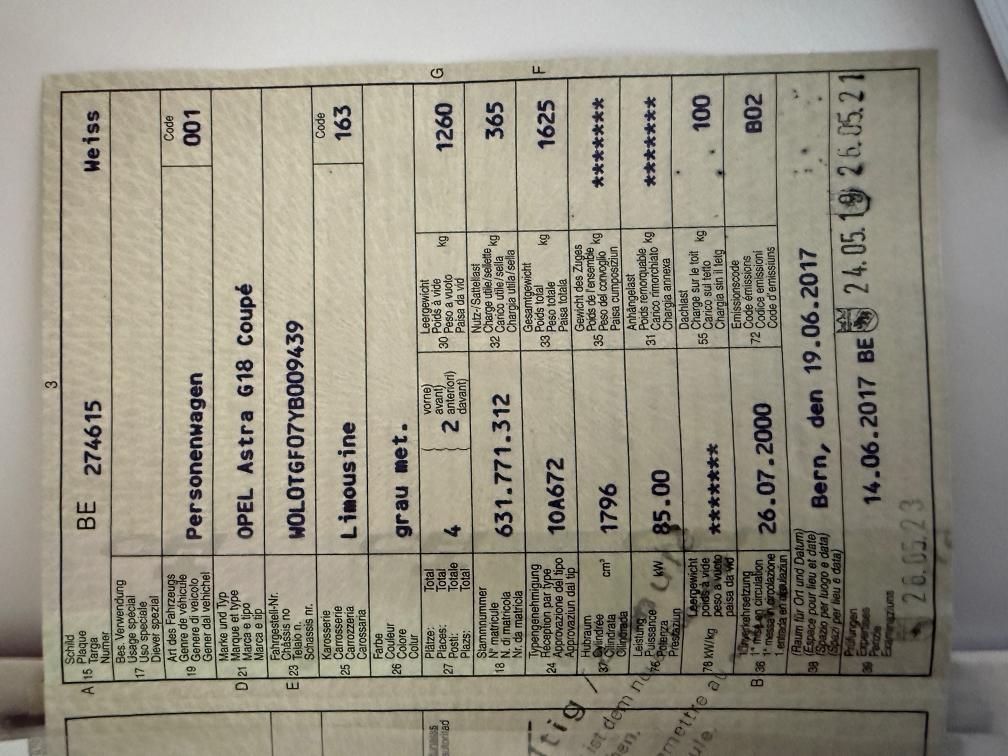 3
A 15 Schild
Plaque
Targa
Numer
BE 274615 Weiss
17 Bes. Verwendung
Usage spécial
Uso speciale
Diever spezial
19 Art des Fahrzeugs
Genre de véhicule
Genere di veicolo
Gener dal vehichel
Personenwagen
Code
001
D 21 Marke und Typ
Marque et type
Marca e tipo
Marca e tip
OPEL Astra G18 Coupé
E 23 Fahrgestell-Nr.
Châssis no
Telaio n.
Schassis nr.
W0L0TGF07YB009439
25 Karosserie
Carrosserie
Carrozzeria
Carossaria
Limousine
Code
163
26 Farbe
Couleur
Colore
Colur
grau met.
27 Plätze: Total
Places: Total
Posti: Totale
Plazs: Total
4
vorne)
avant)
anteriori)
davant)
2
30 Leergewicht
Poids à vide
Peso a vuoto
Paisa da vid
kg
1260
G
18 Stammnummer
N° matricule
N. di matricola
Nr. da matricla
631.771.312
32 Nutz-/Sattellast
Charge utile/sellette
Carico utile/sella
Chargia utila/sella
kg
365
24 Typengenehmigung
Réception par type
Approvazione del tipo
Approvaziun dal tip
10A672
33 Gesamtgewicht
Poids total
Peso totale
Paisa totala
kg
1625
F
37 Hubraum
Cylindrée
Cilindrata
Cilindrada
cm³
1796
35 Gewicht des Zuges
Poids de l'ensemble
Peso del convoglio
Paisa cumposiziun
kg
*******
76 Leistung
Puissance
Potenza
Prestaziun
kW
85.00
31 Anhängelast
Poids remorquable
Carico rimorchiato
Chargia annexa
kg
*******
78 kW/kg
Leergewicht
poids à vide
peso a vuoto
paisa da vid
*******
55 Dachlast
Charge sur le toit
Carico sul tetto
Chargia sin il tetg
kg
100
B 36 1. Inverkehrsetzung
1re mise en circulation
1a messa in circolazione
1. entrada en circulaziun
26.07.2000
72 Emissionscode
Code émissions
Codice emissioni
Code d'emissiuns
B02
38 (Raum für Ort und Datum)
(Espace pour lieu et date)
(Spazio per luogo e data)
(Spazi per lieu e data)
Bern, den 19.06.2017
39 Prüfungen
Expertises
Perizie
Examinaziuns
14.06.2017 BE 24.05.19 26.05.21
26.05.23
ist dem